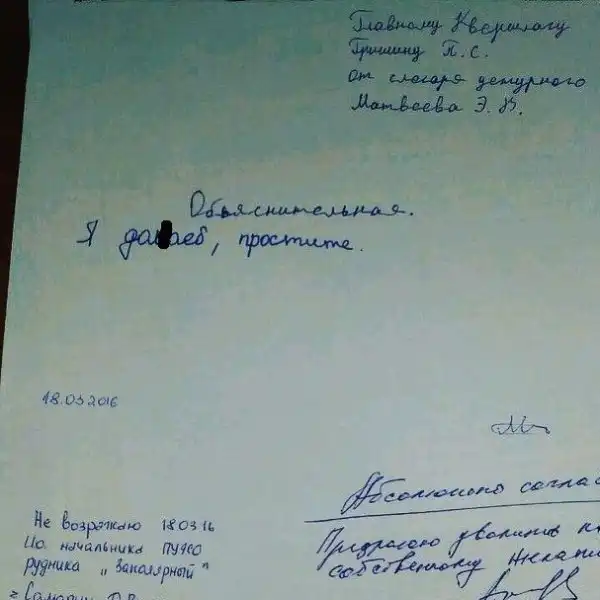 Главному Квершлагу
Гришину П.С.
от слесаря дежурного
Матвеева Э.В.
Объяснительная.
Я дал аеб, простите.
18.03.2016
Абсолютно соглас
Не возражаю 18.03.16
Ио. начальника
рудника "Заполярный"
Предлагаю уволить
собственному желани